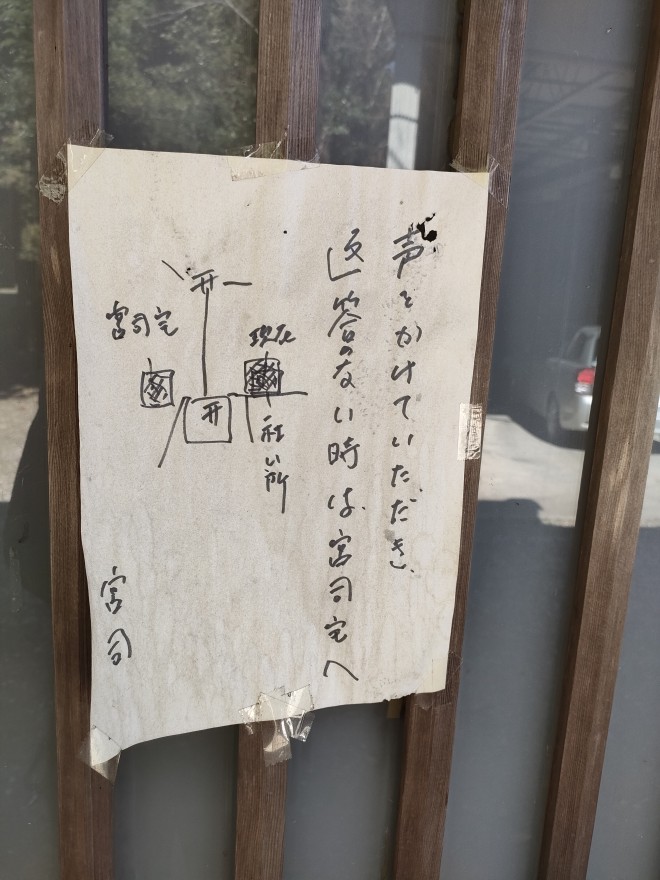 声をかけていただき、
返答のない時は、宮司宅へ
現在
社ム所
宮司宅
宮司